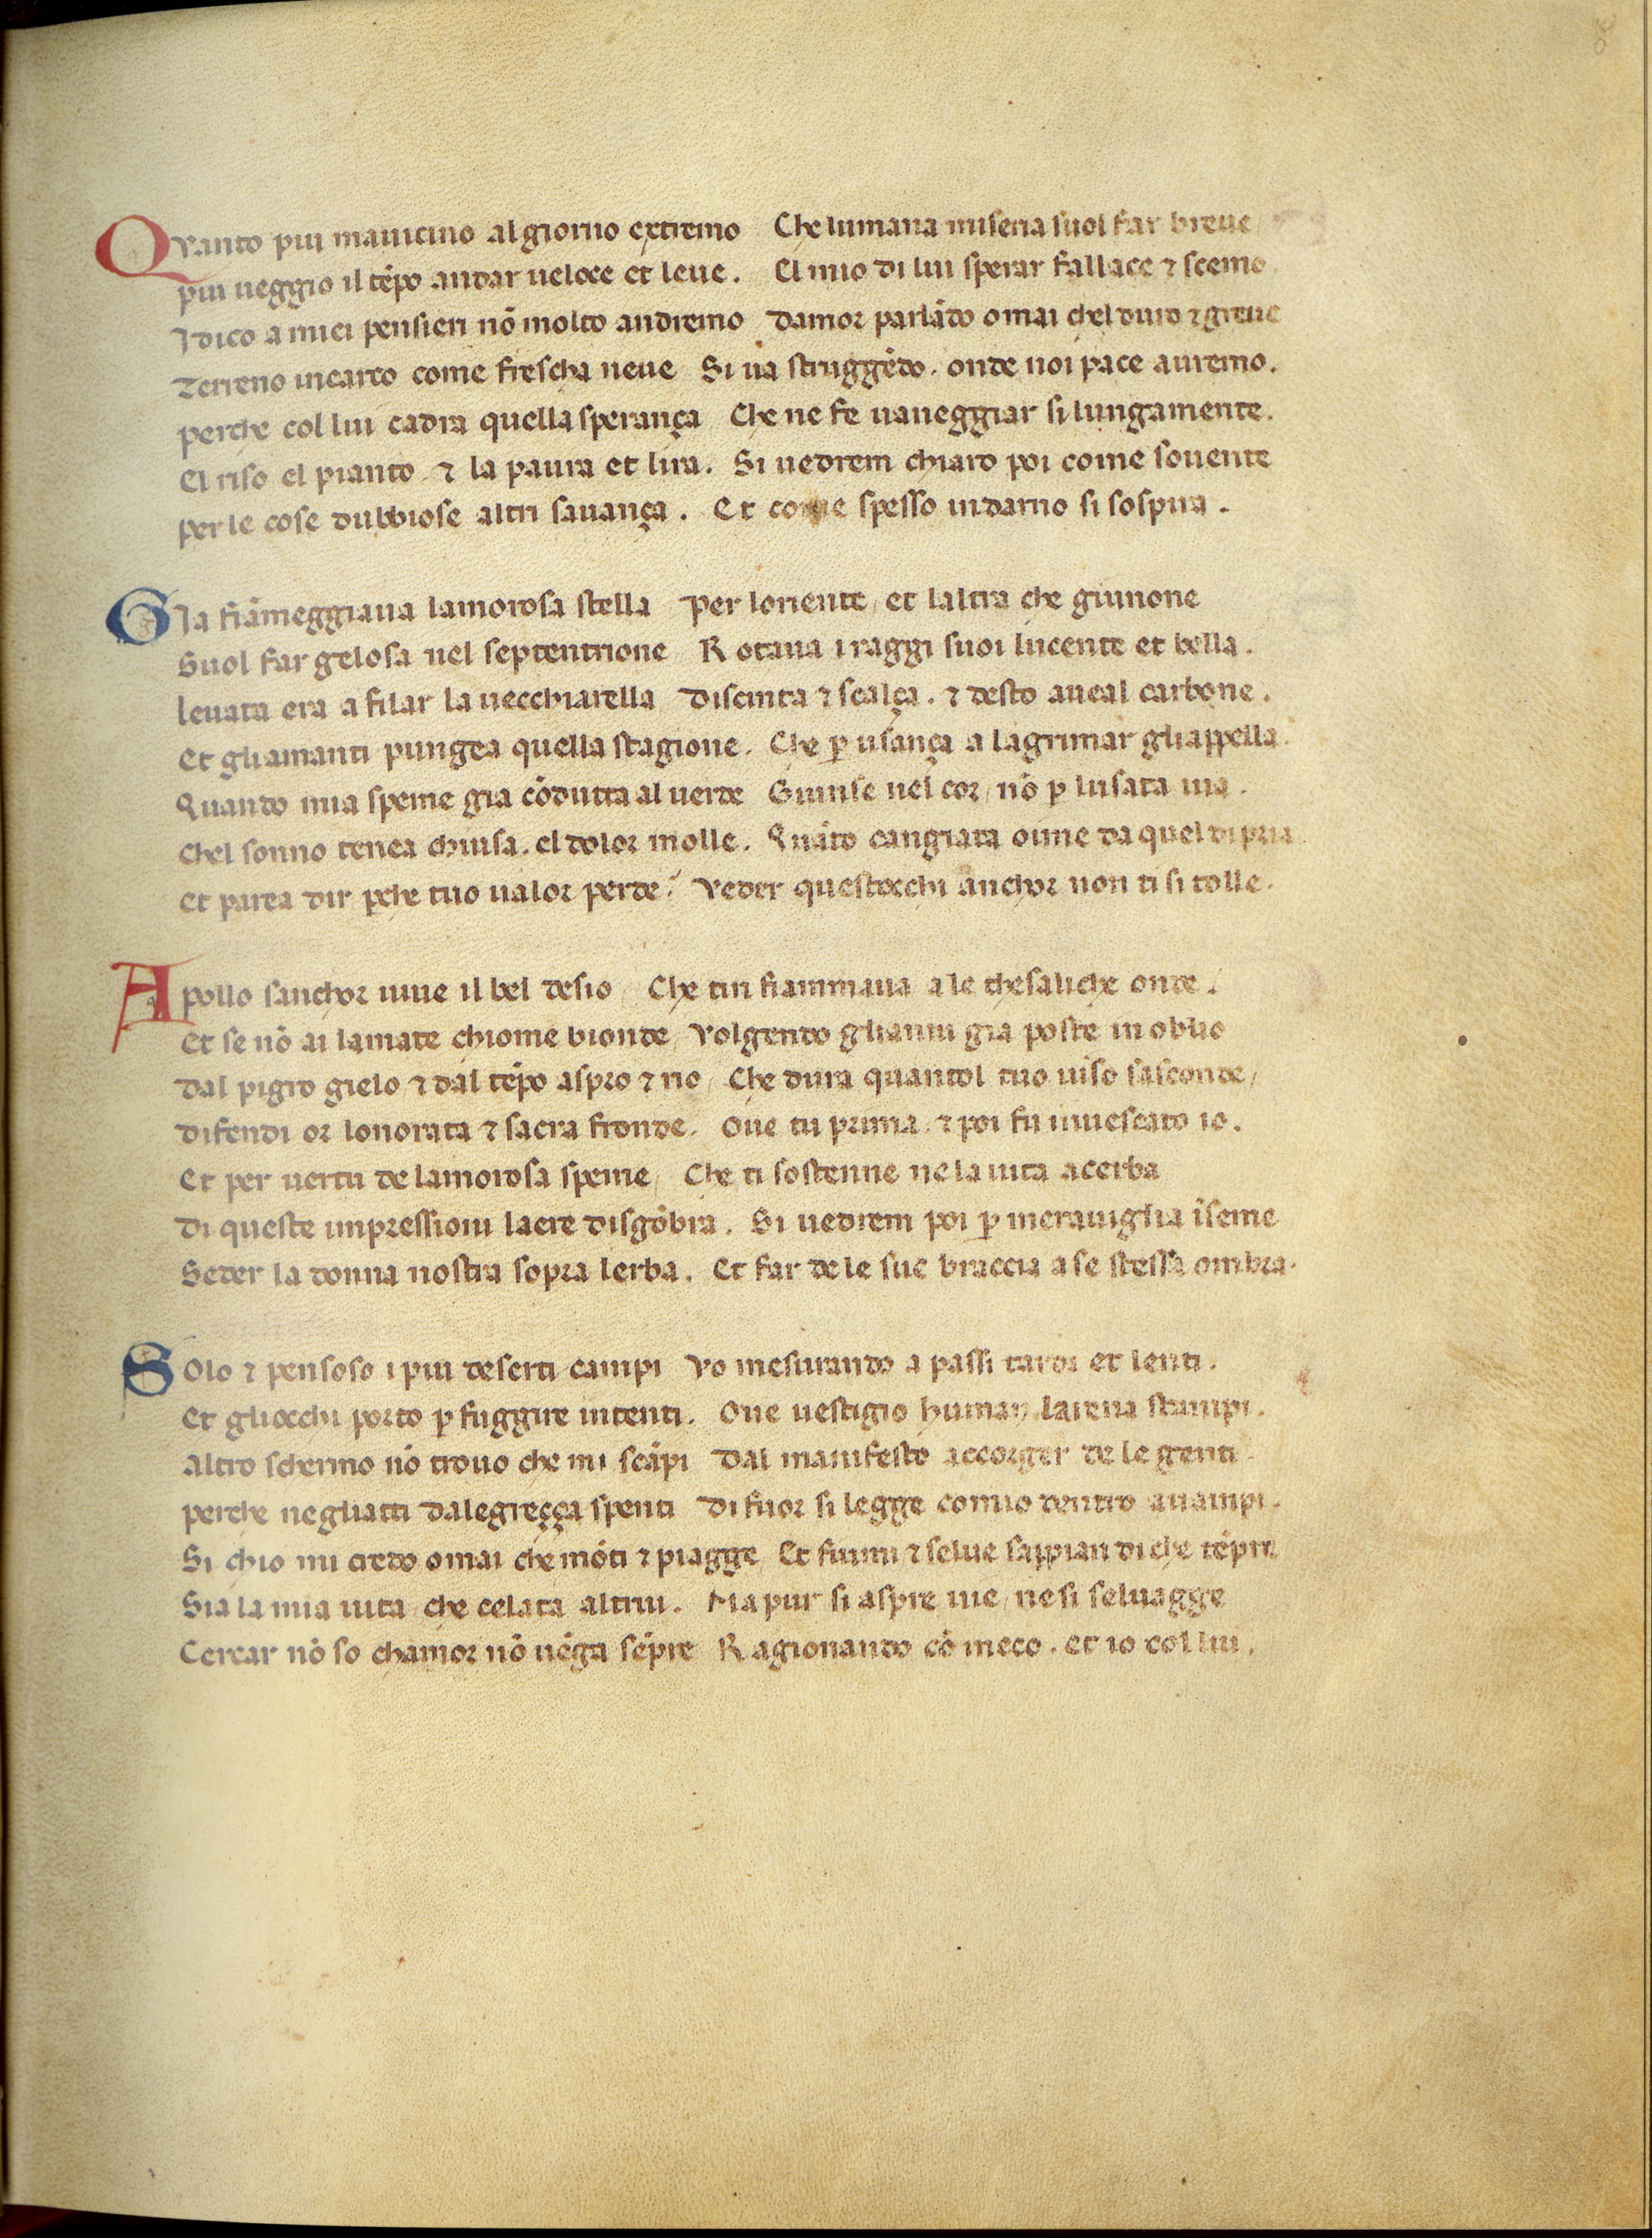 Quanto piu mauicino al giorno extremo Che lumana miseria suol far breue
piu ueggio il tēpo andar ueloce et leue. El mio di lui sperar fallace ⁊ scemo.
I dico a miei pensieri nō molto andremo Damor parlādo omai chel duro ⁊ greue
Terreno incarco come frescha neue Si ua struggēdo. onde noi pace auremo.
perche col lui cadra quella sperança Che ne fe uaneggiar si lungamente.
El riso el pianto ⁊ la paura et lira. Si uedrem chiaro poi come souente
per le cose dubbiose altri sauança. Et come spesso indarno si sospira.
Gia fiāmeggiaua lamorosa stella per loriente, et laltra che giunone
Suol far gelosa nel septentrione Rotaua i raggi suoi lucente et bella.
leuata era a filar la uecchiarella Discinta ⁊ scalça. ⁊ desto aueal carbone.
Et gliamanti pungea quella stagione. Che ꝑ usança a lagrimar gliappella.
Quando mia speme gia cōdutta al uerde Giunse nel cor, nō ꝑ lusata uia.
chel sonno tenea chiusa. el dolor molle. Quāto cangiata oime da quel di pria.
Et parea dir ꝑche tuo ualor perde? Veder questocchi anchor non ti si tolle.
Apollo sanchor uiue il bel desio, Che tin fiammaua a le thesaliche onde.
Et se nō ai lamate chiome bionde, Volgendo glianni gia poste in oblio
Dal pigro gielo ⁊ dal tēpo aspro ⁊ rio, Che dura quantol tuo uiso sasconde,
Difendi or lonorata ⁊ sacra fronde. Oue tu prima ⁊ poi fu inuescato io.
Et per uertu de lamorosa speme, Che ti sostenne ne la uita acerba
Di queste impressioni laere disgōbra. Si uedrem poi ꝑ merauiglia īseme
Seder la donna nostra sopra lerba. Et far de le sue braccia a se stessa ombra.
Solo ⁊ pensoso i piu deserti campi Vo mesurando a passi tardi et lenti.
Et gliocchi porto ꝑ fuggire intenti. Oue uestigio human larena stampi.
Altro schermo nō trouo che mi scāpi Dal manifesto accorger de le genti.
perche negliatti dalegreçça spenti Di fuor si legge comio dentro auampi.
Si chio mi credo omai che mōti ⁊ piagge Et fiumi ⁊ selue sappian di che tēpre
Sia la mia uita, che celata altrui. Ma pur si aspre uie, ne si seluagge
Cercar nō so chamor nō uēga sēpre Ragionando cō meco. et io col lui.